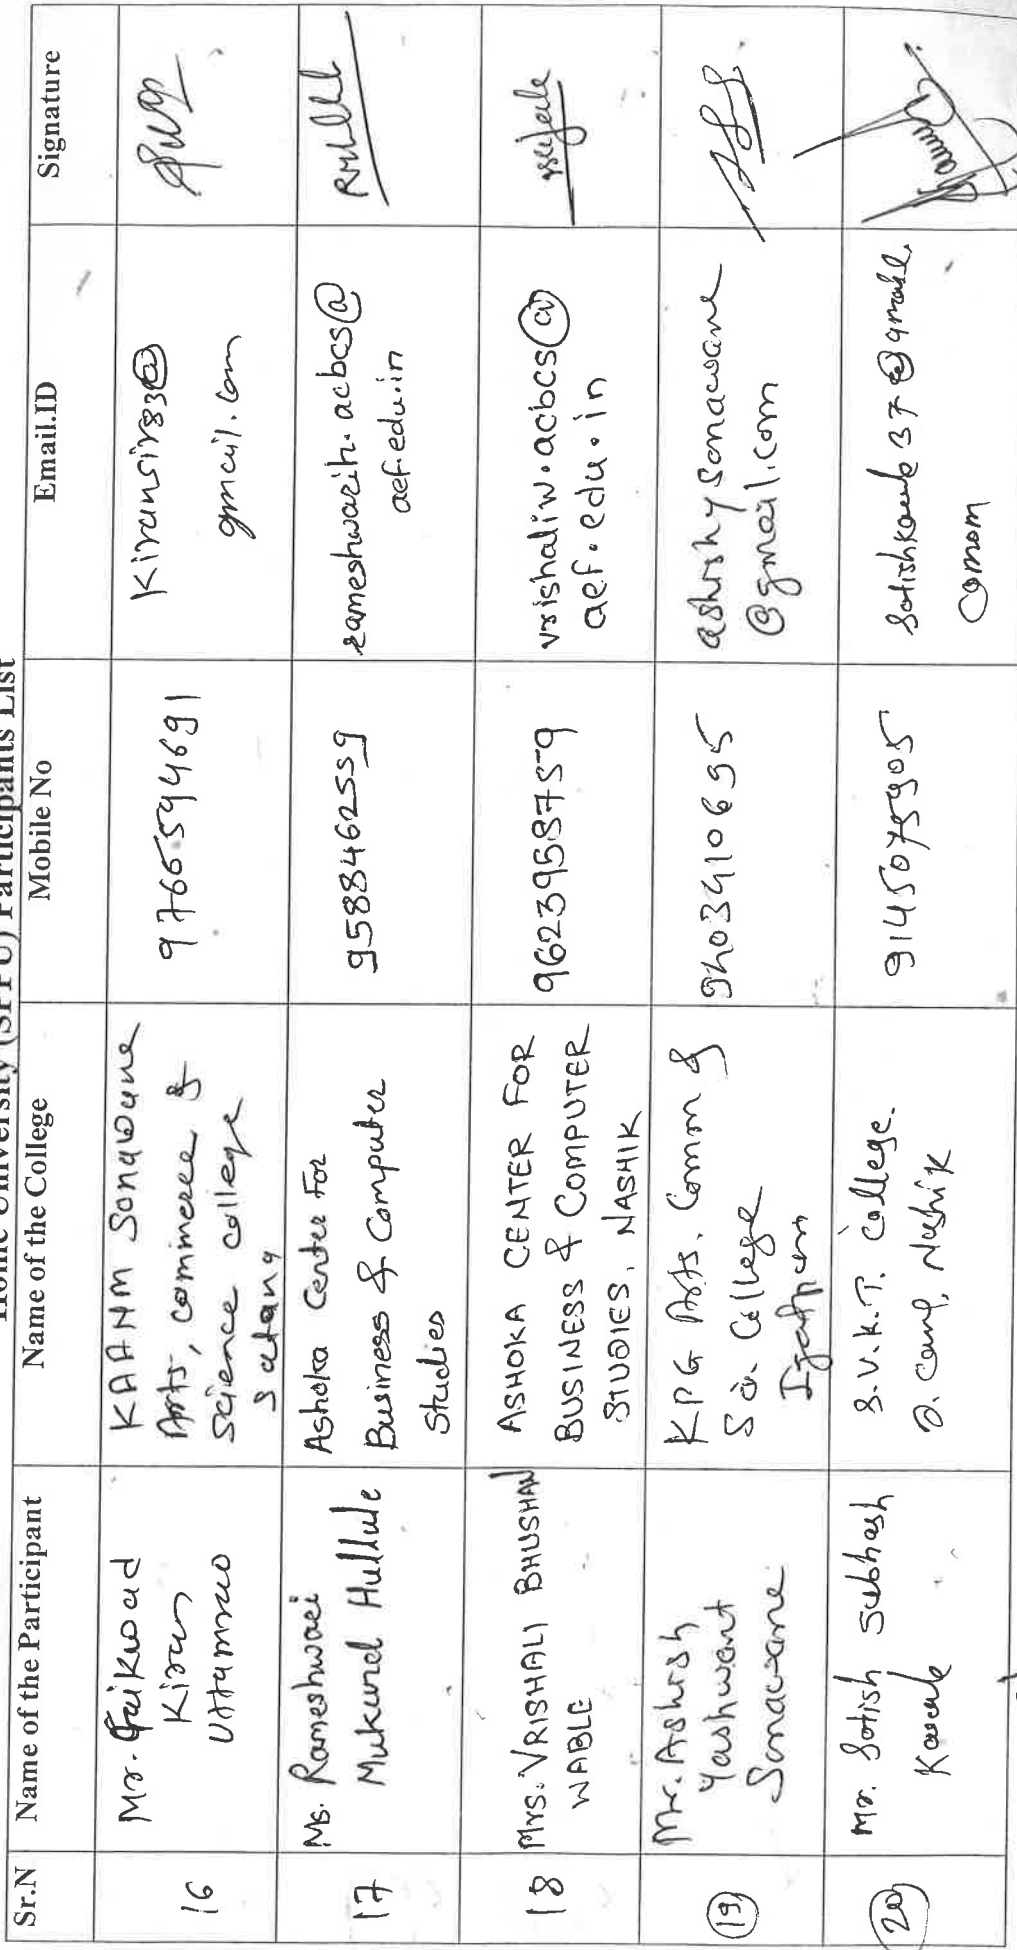 Home University (SPPU) Participants List
Sr.N Name of the Participant Name of the College Mobile No Email.ID Signature
16
Mr. Gaikwad
Kiran
Uttamrao
KAANM Sonawane
Arts, commerce &
Science college
Satana
9766594691
Kiransirs83@
gmail.com
17
Ms. Rameshwari
Mukund Hullule
Ashoka Center For
Business & Computer
Studies
9588462559
rameshwarih.acbcs@
aef.edu.in
18
Mrs. VRISHALI BHUSHAN
WABLE
ASHOKA CENTER FOR
BUSINESS & COMPUTER
STUDIES, NASHIK
9623958759
vrishaliw.acbcs@
aef.edu.in
19
Mr. Ashish
Yashwant
Sonawane
KPG Arts, Comm &
Sci. College
Igatpuri
9403410695
ashishysonawane
@gmail.com
20
Mr. Satish Subhash
S.V.K.T. College.
D. Camp, Nashik
9145075905
37@gmail.